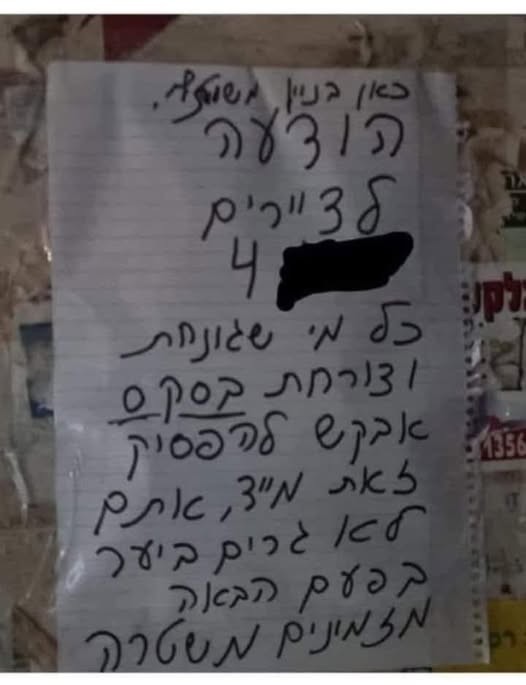 כאן בניין משותף.
הודעה
לדיירים
4
כל מי שגונחת
וצורחת בסקס
אבקש להפסיק
זאת מייד, אתם
לא גרים ביער
בפעם הבאה
מזמינים משטרה
1356